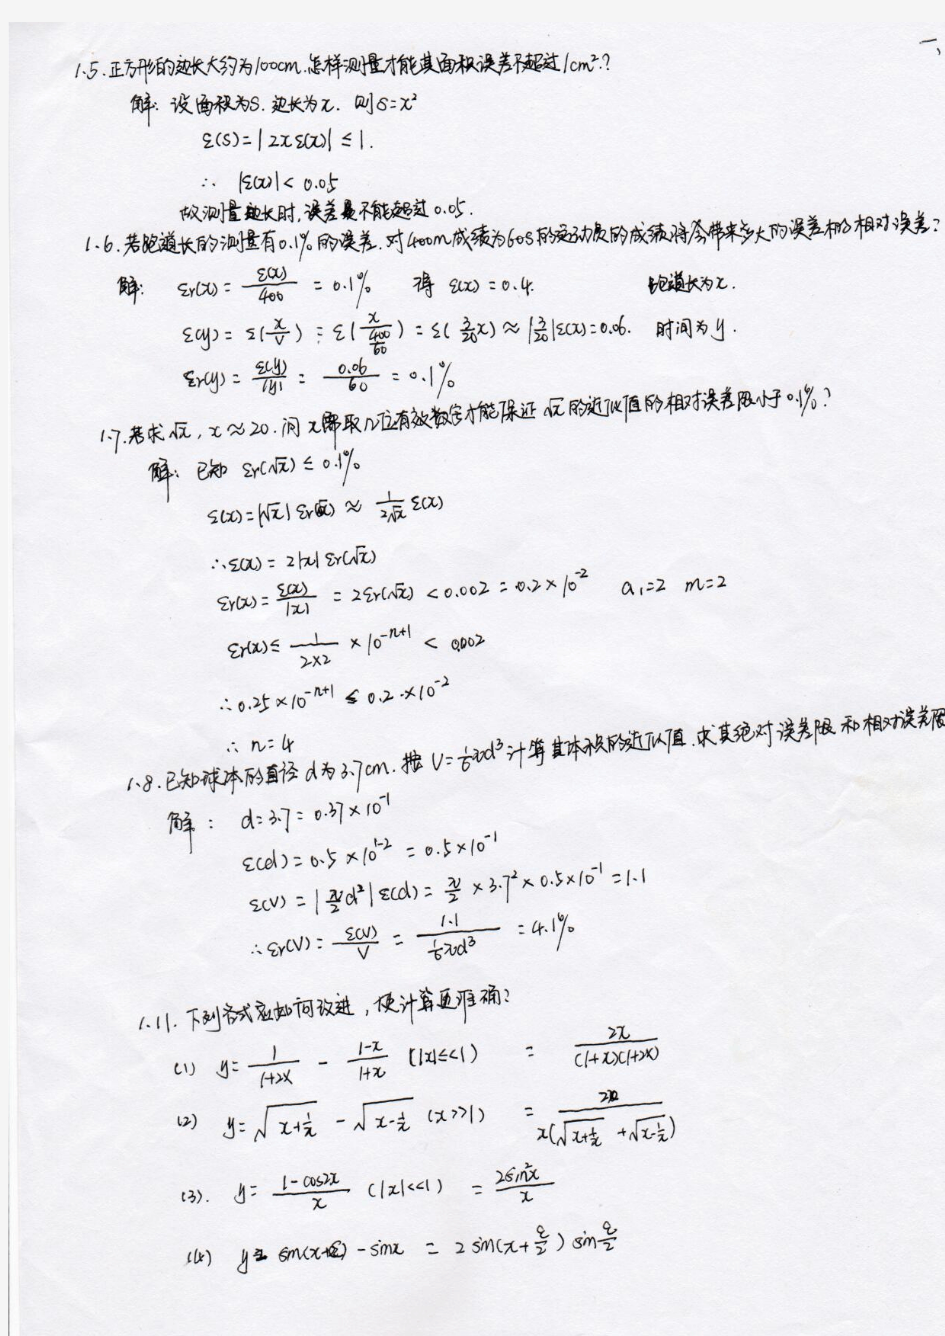 一、
1.5.正方形的边长大约为100cm.怎样测量才能其面积误差不超过1cm²?
解: 设面积为S. 边长为x. 则S=x²
ε(S)=|2xε(x)| ≤ 1.
∴ |ε(x)| < 0.05
故测量边长时,误差不能超过0.05.
1.6.若跑道长的测量有0.1%的误差.对400m成绩为60s的运动员的成绩将会带来多大的误差和相对误差?
解: εr(x) = ε(x)/400 = 0.1% 得 ε(x) = 0.4. 跑道长为x.
ε(y) = ε(x/v) = ε(x/(400/60)) = ε(3/20 x) ≈ |3/20|ε(x)=0.06. 时间为y.
εr(y) = ε(y)/|y| = 0.06/60 = 0.1%
1.7.若求√x, x≈20.问x需取几位有效数字才能保证√x的近似值的相对误差限小于0.1%?
解: 已知 εr(√x) ≤ 0.1%
ε(x)=|√x| εr(√x) ≈ 1/(2√x) ε(x)
∴ε(x) = 2|x| εr(√x)
εr(x)= ε(x)/|x| = 2εr(√x) < 0.002 = 0.2×10⁻² a₁=2 m=2
εr(x)≤ 1/(2×2) × 10⁻ⁿ⁺¹ < 0.002
∴0.25×10⁻ⁿ⁺¹ ≤ 0.2×10⁻²
∴ n=4
1.8.已知球体的直径d为3.7cm.按V=1/6πd³计算其体积的近似值.求其绝对误差限和相对误差限
解: d=3.7=0.37×10¹
ε(d)=0.5×10¹⁻² = 0.5×10⁻¹
ε(V) = |π/2 d²| ε(d) = π/2 × 3.7² × 0.5×10⁻¹ = 1.1
∴εr(V) = ε(V)/V = 1.1/(1/6 πd³) = 4.1%
1.11.下列各式应如何改进,使计算更准确?
(1) y= 1/(1+2x) - (1-x)/(1+x) (|x|≤<1) = 2x/((1+x)(1+2x))
(2) y=√(x+1/x) - √(x-1/x) (x>>1) = 2x/(x(√(x+1/x) +√(x-1/x)))
(3). y= (1-cos2x)/x (|x|<<1) = 2sin²x/x
(4) y= sin(x+ε) - sinx = 2 sin(x+ε/2) sin ε/2